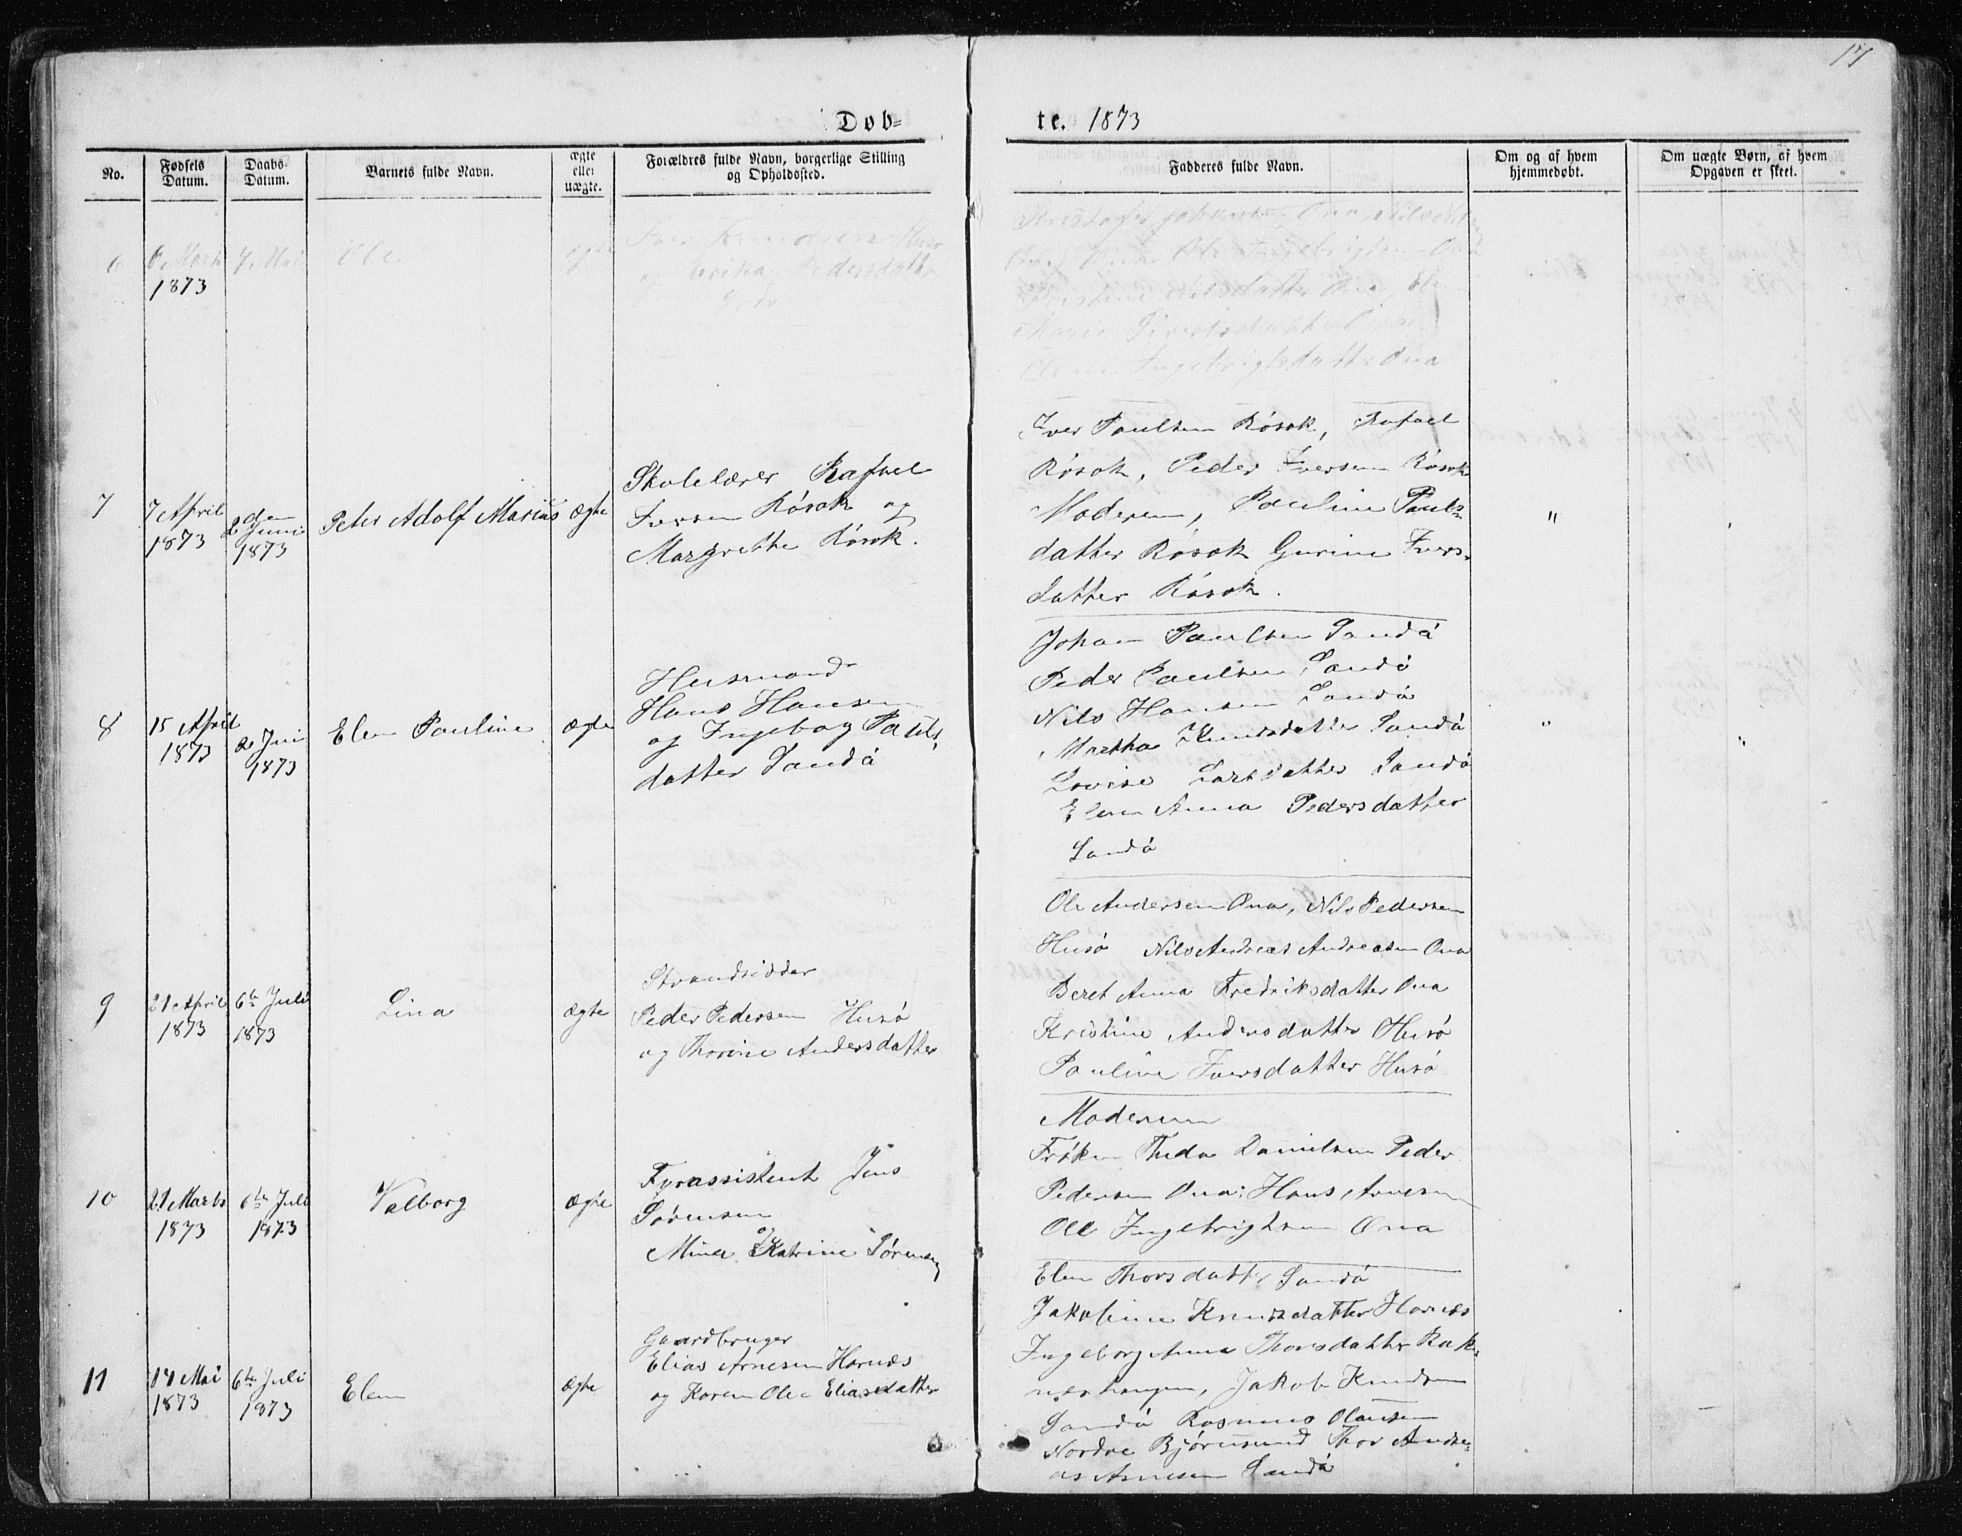 17
Døb=
te. 1873
No.
Fødsels Datum.
Daabs Datum.
Barnets fulde Navn.
ægte eller uægte.
Forældres fulde Navn, borgerlige Stilling og Opholdssted.
Fadderes fulde Navn.
Om og af hvem hjemmedøbt.
Om uægte Børn, af hvem Opgaven er skeet.
6
Marts
1873
4 Mai
Ole
ægte
Iver Knudsen Husø
og Erika Pedersdatter
Ona Ole Ingebrigtsen Ona
Nilsdatter Ona, Elen
Maria
Ingebrigtsdatter Ona
7
7 April
1873
2den Juni
1873
Peter Adolf Marius
Ægte
Skolelærer Rafael
Iversen Røsok og
Margrethe Røsok.
Iver Paulsen Røsok, Rafael
Røsok, Peder Iversen Røsok
Moderen, Pauline Pauls-
datter Røsok Gurine Ivers-
datter Røsok.
"
8
15 April
1873
2 Juni
1873
Elen Pauline
Ægte
Husmand
Hans Hansen
og Ingebog Pauls-
datter Sandø
Johan Paulsen Sandø
Peder Paulsen Sandø
Nils Hansen Sandø
Martha Knudsdatter Sandø
Lovise Larsdatter Sandø
Elen Anna Pedersdatter
Sandø
"
"
9
21 April
1873
6te Juli
1873
Lina
Ægte
Strandsidder
Peder Pedersen Husø
og Thorine Andersdatter
Ole Andersen Ona, Nils Pedersen
Husø Nils Andreas Andreasen Ona
Beret Anna Fredriksdatter Ona
Kristine Andersdatter Husø
Pauline Iversdatter Husø
10
21 Marts
1873
6te Juli
1873
Valborg
Ægte
Fyrassistent Jens
Sørensen
og
Mina Katrine Sørensen
Moderen
Frøken Thida Danielsen Peder
Pedersen Ona; Hans Arnesen
Ole Ingebrigtsen Ona
11
14 Mai
1873
6te Juli
1873
Elen
Ægte
Gaardbruger
Elias Arnesen Harnæs
og Karen Olea Eliasdatter
Elen Thorsdatter Sandø
Jakobine Knudsdatter Harnæs
Ingeborg Anna Thorsdatter Rak-
næshangen, Jakob Knudsen
Sandø Rasmus Olausen
Nordre Bjørnsund Thor Andre-
as Arnesen Sandø